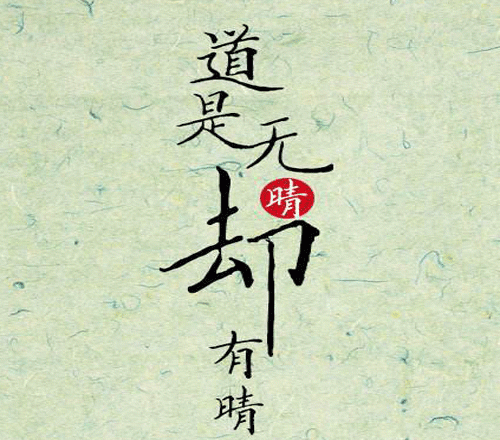 道是无晴却有晴